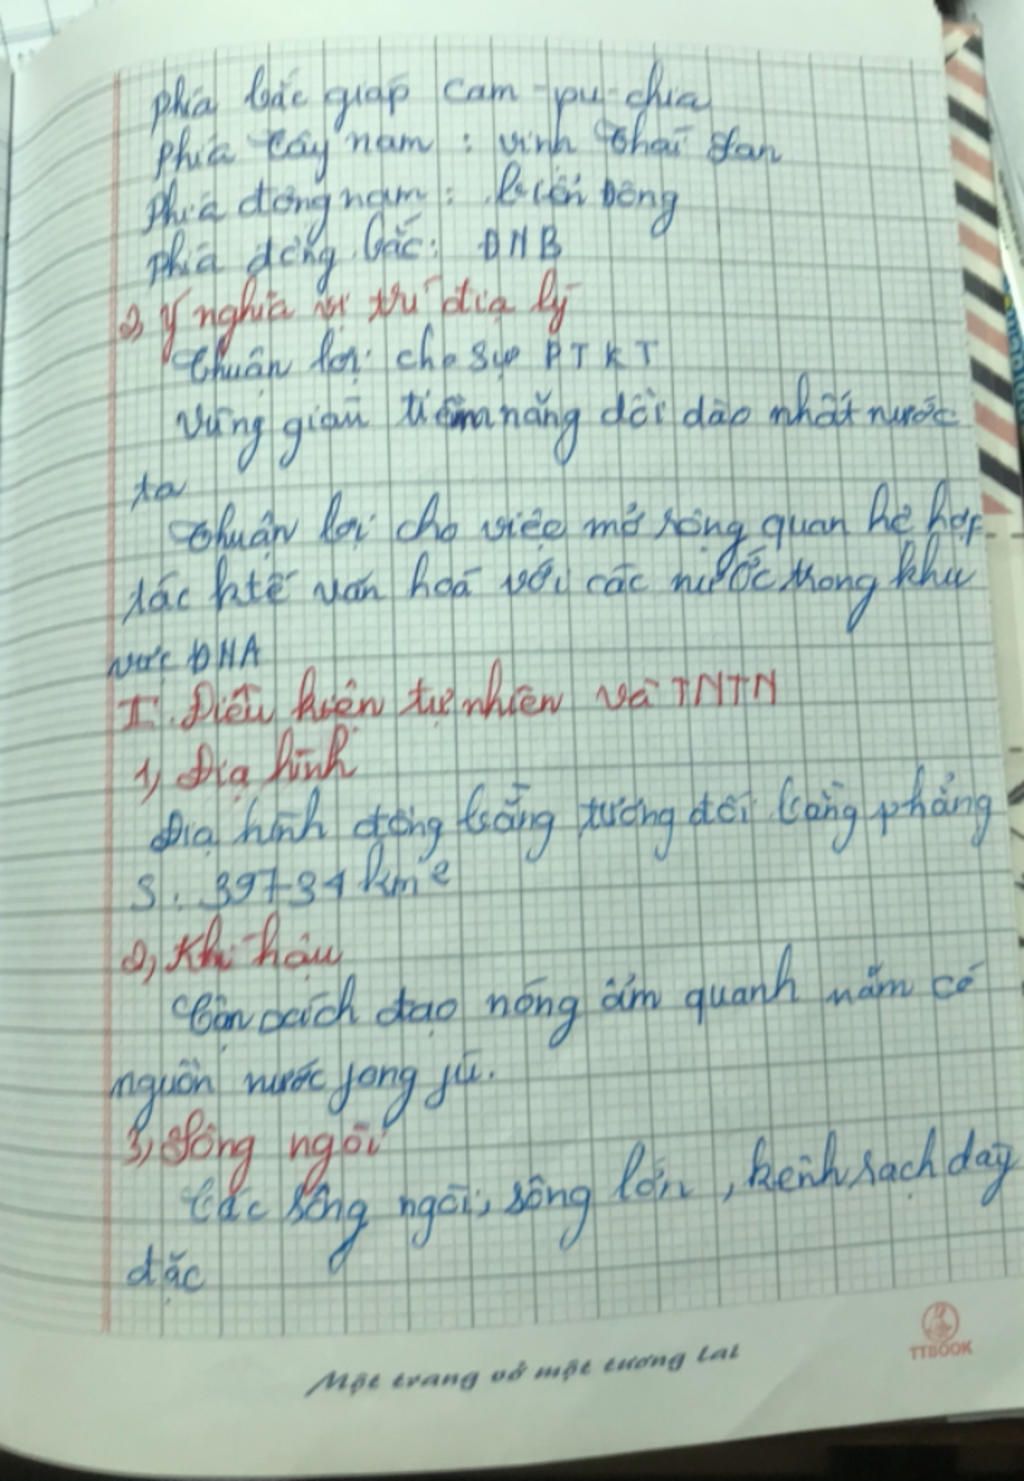 phía bắc giáp Cam-pu-chia
phía tây nam : vịnh Thái Lan
phía đông nam : biển Đông
phía đông bắc : ĐNB
2, Ý nghĩa vị trí địa lý
Thuận lợi cho sự PTKT
Vùng giàu tiềm năng dồi dào nhất nước
ta
Thuận lợi cho việc mở rộng quan hệ hợp
tác ktế văn hoá với các nước trong khu
vực ĐNA
I. Điều kiện tự nhiên và TNTN
1, Địa hình
Địa hình đồng bằng tương đối bằng phẳng
S : 39734 km²
2, Khí hậu
Cận xích đạo nóng ẩm quanh năm có
nguồn nước phong phú.
3, Sông ngòi
Các sông ngòi, sông lớn, kênh rạch dày
đặc
Một trang vở một tương lai
TTBOOK